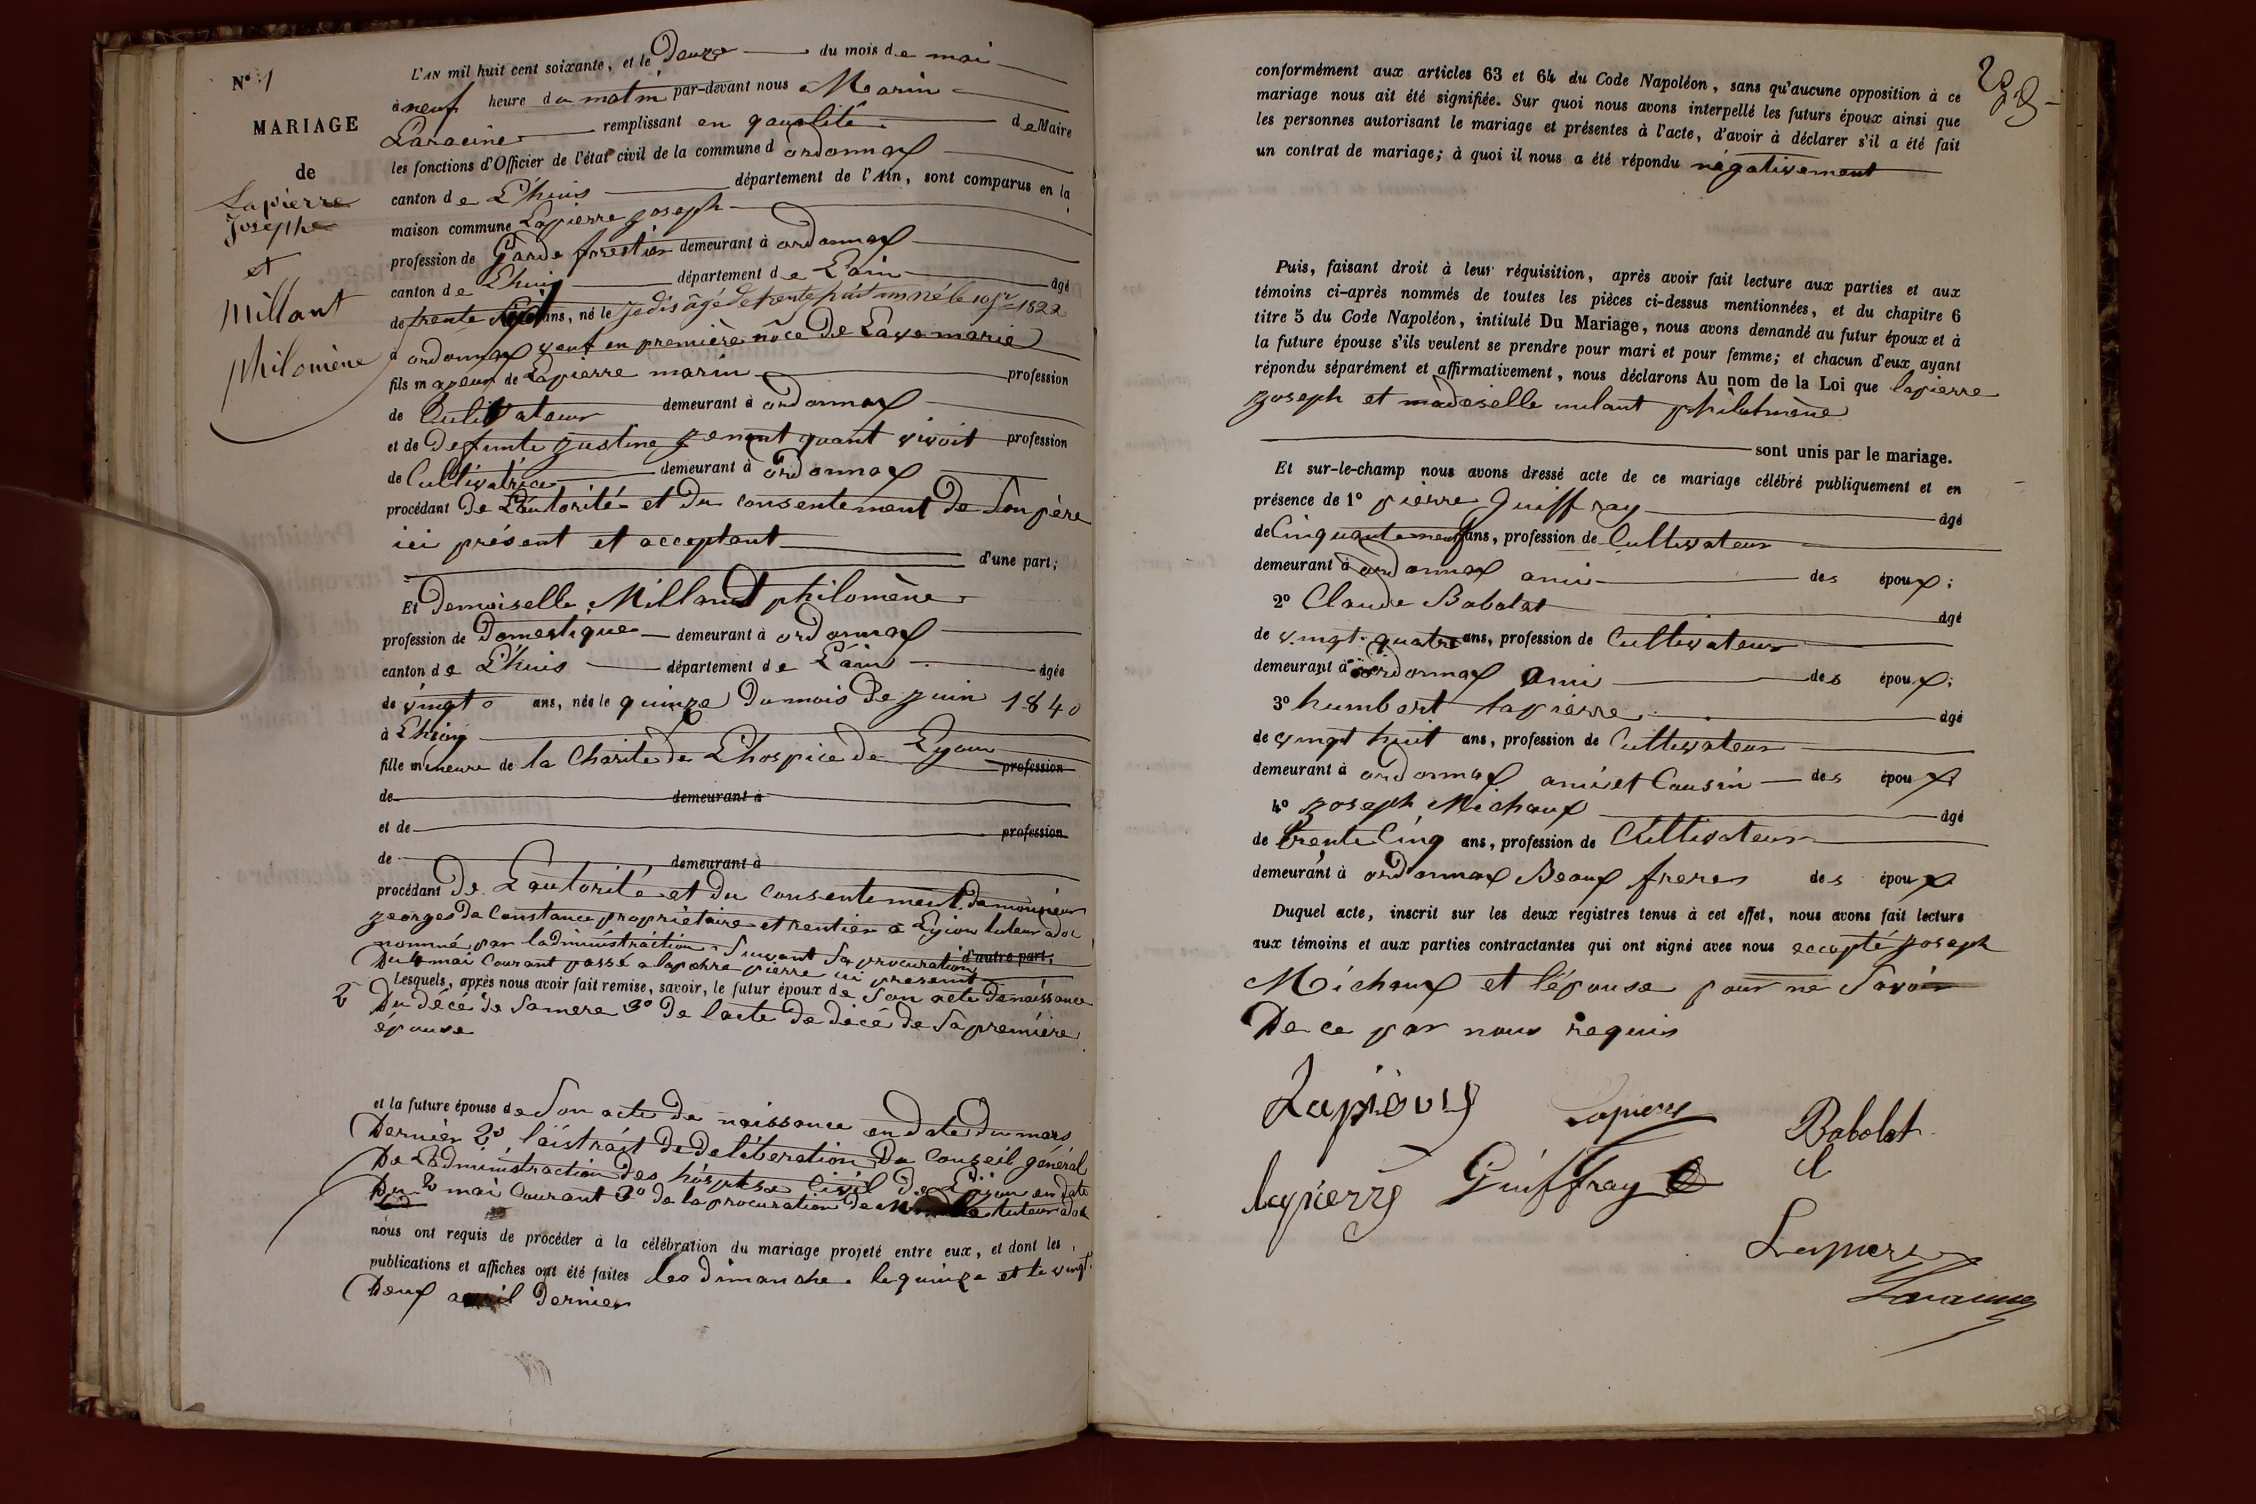 N° 1
MARIAGE
de
Lapierre
Josephe
et
Millant
philomène
L'AN mil huit cent soixante, et le Douze du mois de mai
à neuf heure du matin par-devant nous Marin
Laracine remplissant en qaualité de Maire
les fonctions d'Officier de l'état civil de la commune d ordonnax
canton de L'huis département de l'Ain, sont comparus en la
maison commune Lapierre joseph
profession de Garde forestier demeurant à ordonnax
canton de L'huis département de L'ain âgé
de trente ans, né le je dis âgé de trente huit ans né le 10 1822
à ordonnax veuf en première nôce de Lave marie
fils majeur de Lapierre marin profession
de Cultivateur demeurant à ordonnax
et de defunte justine jenant quant vivoit profession
de Cultivatrice demeurant à ordonnax
procédant de L'autorité et du consentement de Son père
ici présent et acceptant
d'une part;
Et demoiselle Millant philomène
profession de Domestique demeurant à ordonnax
canton de L'huis département de L'ain âgée
de vingt ans, née le quinze du mois de juin 1840
à Lhion
fille mineure de la Charité de L'hospice de Lyion profession
de demeurant à
et de profession
de demeurant à
procédant de L'autorité et du consentement de monsieur
georges de Constance propriétaire et rentier a Lyion tuteur adoc
nommé par ladministraction Suivant Sa procuration d'autre part;
Du 4 mai Courant passé a lapierre pierre ici présent
Lesquels, après nous avoir fait remise, savoir, le futur époux de Son acte de naissance
2° Du décé de Sa mere 3° De l'acte de décé de Sa première
épouse
et la future épouse de Son acte de naissance en date du mars
Dernier 2° l'éistrait de deliberation du Conseil général
De L'administraction des hospise Civil de Lyion en date
Du 2 mai Courant 3° de la procuration de tuteur adoc
nous ont requis de procéder à la célébration du mariage projeté entre eux, et dont les
publications et affiches ont été faites les dimanche le quinze et le vingt
Deux avril Dernier
conformément aux articles 63 et 64 du Code Napoléon, sans qu'aucune opposition à ce
mariage nous ait été signifiée. Sur quoi nous avons interpellé les futurs époux ainsi que
les personnes autorisant le mariage et présentes à l'acte, d'avoir à déclarer s'il a été fait
un contrat de mariage; à quoi il nous a été répondu négativement
Puis, faisant droit à leur réquisition, après avoir fait lecture aux parties et aux
témoins ci-après nommés de toutes les pièces ci-dessus mentionnées, et du chapitre 6
titre 5 du Code Napoléon, intitulé Du Mariage, nous avons demandé au futur époux et à
la future épouse s'ils veulent se prendre pour mari et pour femme; et chacun d'eux ayant
répondu séparément et affirmativement, nous déclarons Au nom de la Loi que lapierre
joseph et madeselle milant philomène
sont unis par le mariage.
Et sur-le-champ nous avons dressé acte de ce mariage célébré publiquement et en
présence de 1° pierre Guiffray âgé
de Cinquante neuf ans, profession de Cultivateur
demeurant à ordonnax ami des époux;
2° Claude Babolat âgé
de vingt quatre ans, profession de Cultivateur
demeurant à ordonnax ami des époux;
3° humbert lapierre âgé
de vingt huit ans, profession de Cultivateur
demeurant à ordonnax ami et Cousin des époux
4° joseph Michaux âgé
de trente Cinq ans, profession de Cultivateur
demeurant à ordonnax Beaux freres des époux
Duquel acte, inscrit sur les deux registres tenus à cet effet, nous avons fait lecture
aux témoins et aux parties contractantes qui ont signé avec nous eccepté joseph
Michaux et l'épouse pour ne Savoir
De ce par nous requis
Lapierre Lapierre Babolat
lapierre Guiffray
Lapierre
Laracine